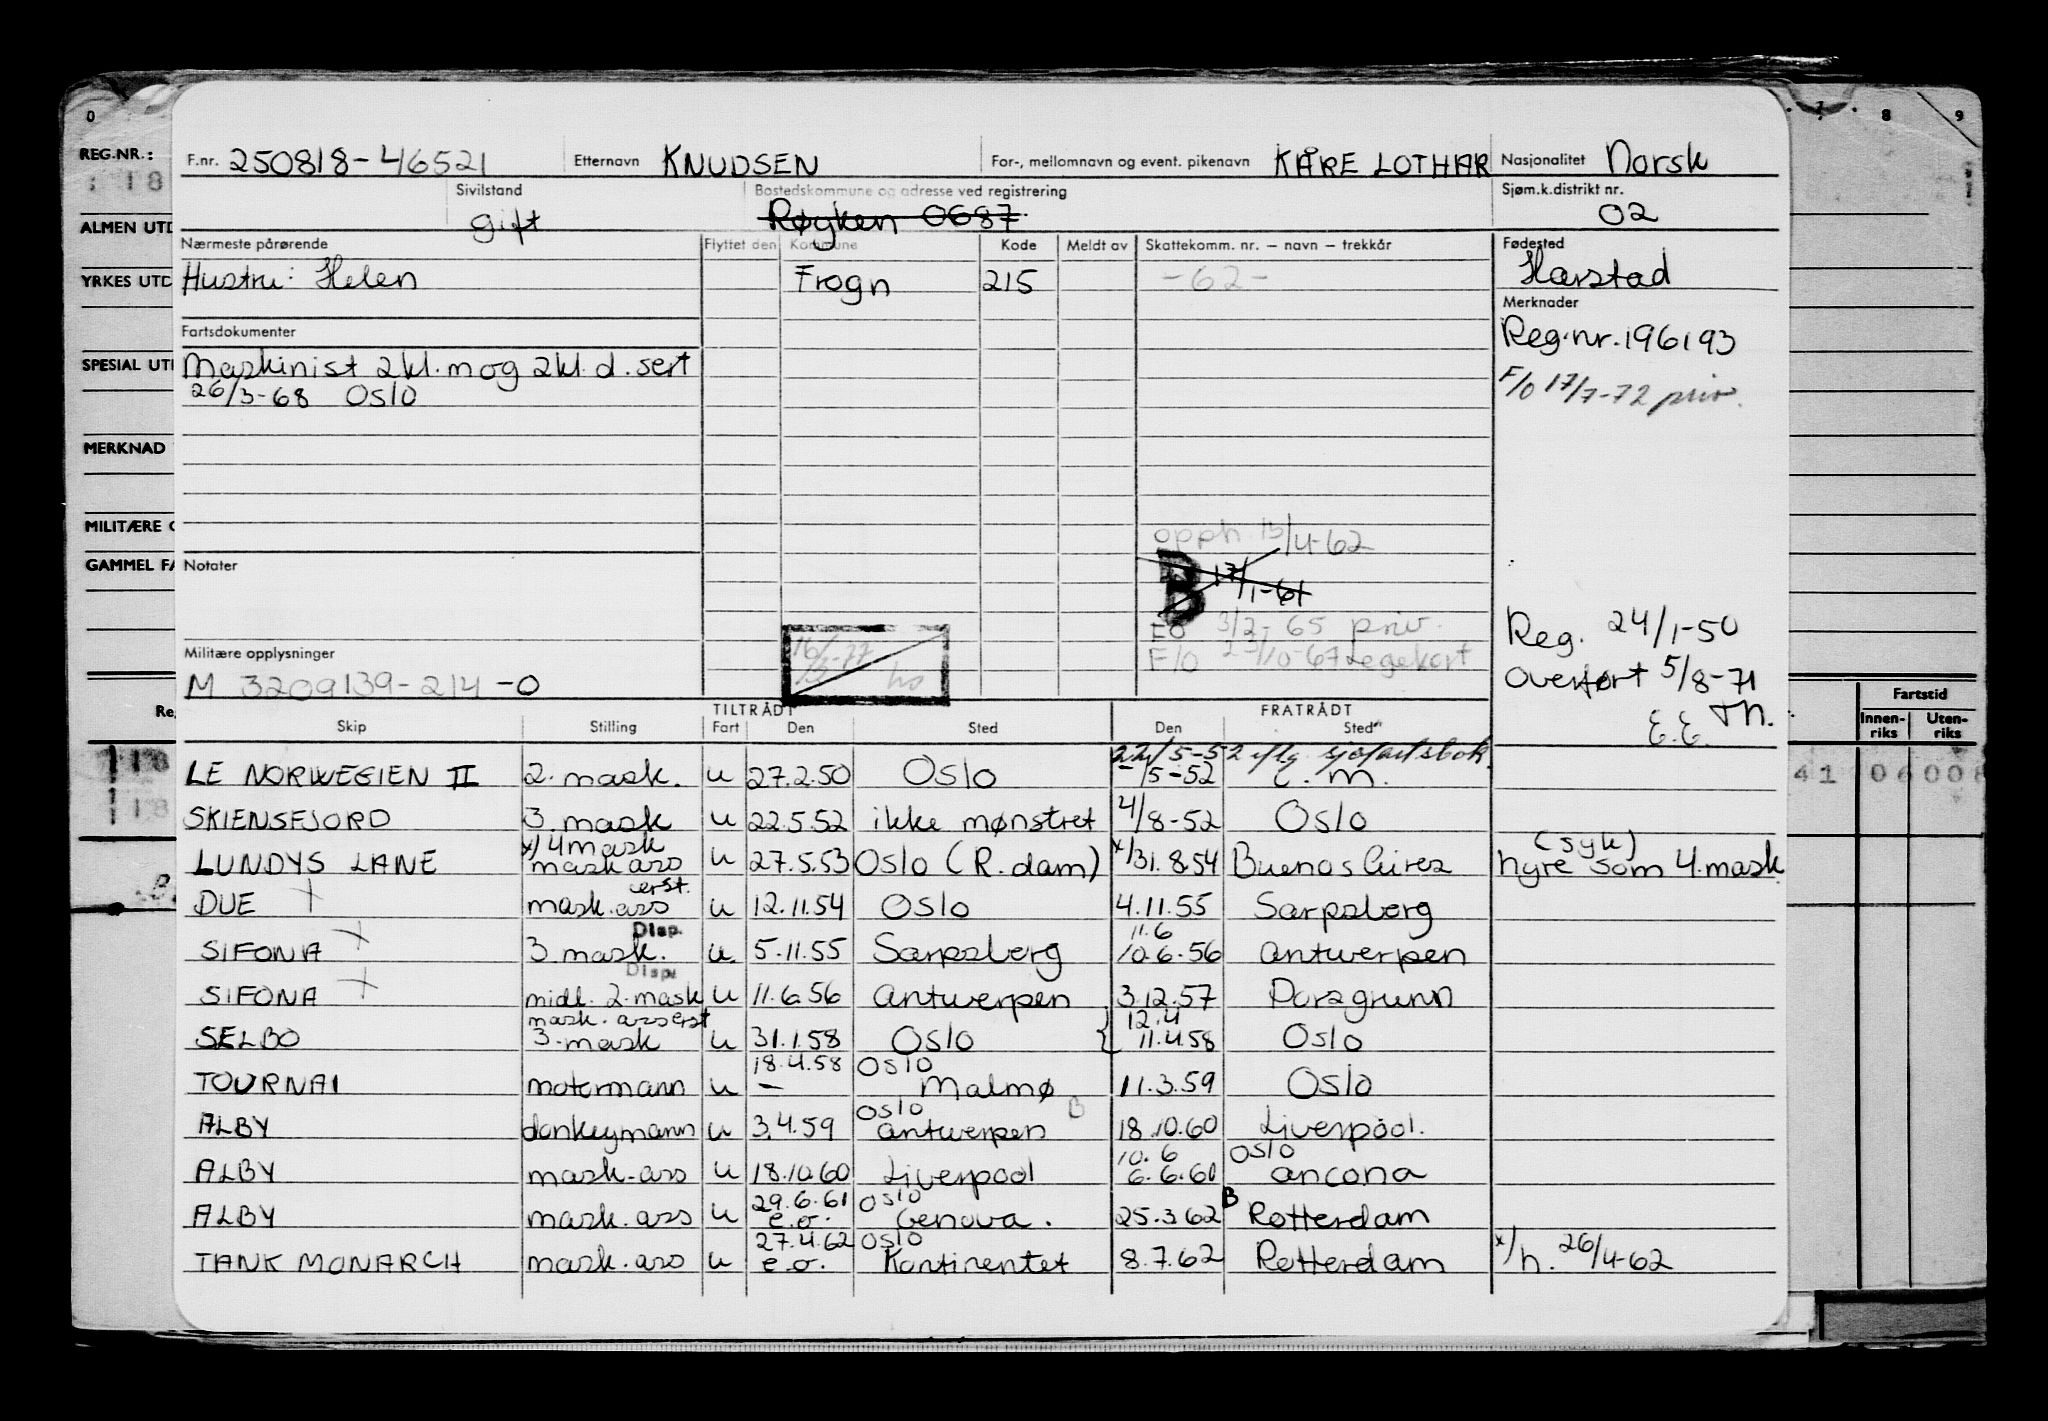 0 7 8 9
REG.NR.: F.nr. 250818-46521 Etternavn KNUDSEN For-, mellomnavn og event. pikenavn KÅRE LOTHAR Nasjonalitet Norsk
: 18
Sivilstand Bostedskommune og adresse ved registrering Sjøm.k.distrikt nr.
ALMEN UTD gift Røyken 0687 02
Nærmeste pårørende Flyttet den Kommune Kode Meldt av Skattekomm. nr. – navn – trekkår Fødested
YRKES UTD Hustru: Helen Frogn 215 -62- Harstad
Merknader
Fartsdokumenter Reg.nr. 196193
SPESIAL UTI Maskinist 2kl. m og 2kl. d. sert
26/3-68 Oslo F/O 17/7-72 priv.
MERKNAD
MILITÆRE O
opph. 13/4-62
GAMMEL FA Notater B 17/1-61
EO 3/2-65 priv. Reg. 24/1-50
Militære opplysninger 16/ -77 F/O /10-67 Legekort
M 3209139-214-0 Overført 5/8-71
Fartstid
E.E. Th.
Re TILTRÅDT FRATRÅDT Innen-riks Uten-riks
Skip Stilling Fart Den Sted Den Sted
22/5-52 iflg. sjøfartsbok.
LE NORWEGIEN II 2. mask. u 27.2.50 Oslo -/5-52 c. m. 41 06 008
SKIENSFJORD 3. mask u 22.5.52 ikke mønstret 4/8-52 Oslo
x/4 mask (syk)
LUNDYS LANE mask ass u 27.5.53 Oslo (R.dam) x/31.8.54 Buenos Aires hyre som 4. mask
erst.
DUE + mask. ass u 12.11.54 Oslo 4.11.55 Sarpsberg
Disp. 11.6
SIFONA + 3 mask. u. 5.11.55 Sarpsberg 10.6.56 Antwerpen
Disp.
SIFONA + midl. 2. mask u 11.6.56 Antwerpen 3.12.57 Porsgrunn
mask. ass erst 12.4
SELBO 3. mask u 31.1.58 Oslo { 11.4.58 Oslo
18.4.58 Oslo
TOURNAI motormann u – Malmø 11.3.59 Oslo
Oslo B
ALBY donkeymann u 3.4.59 Antwerpen 18.10.60 Liverpool.
10.6 Oslo
ALBY mask-ass u 18.10.60 Liverpool 6.6.60 Ancona
29.6.61 Oslo B
ALBY mask. ass u e.o. Genova. 25.3.62 Rotterdam
27.4.62 Oslo
TANK MONARCH mask. ass u e.o. Kontinentet 8.7.62 Rotterdam x/h. 26/4-62